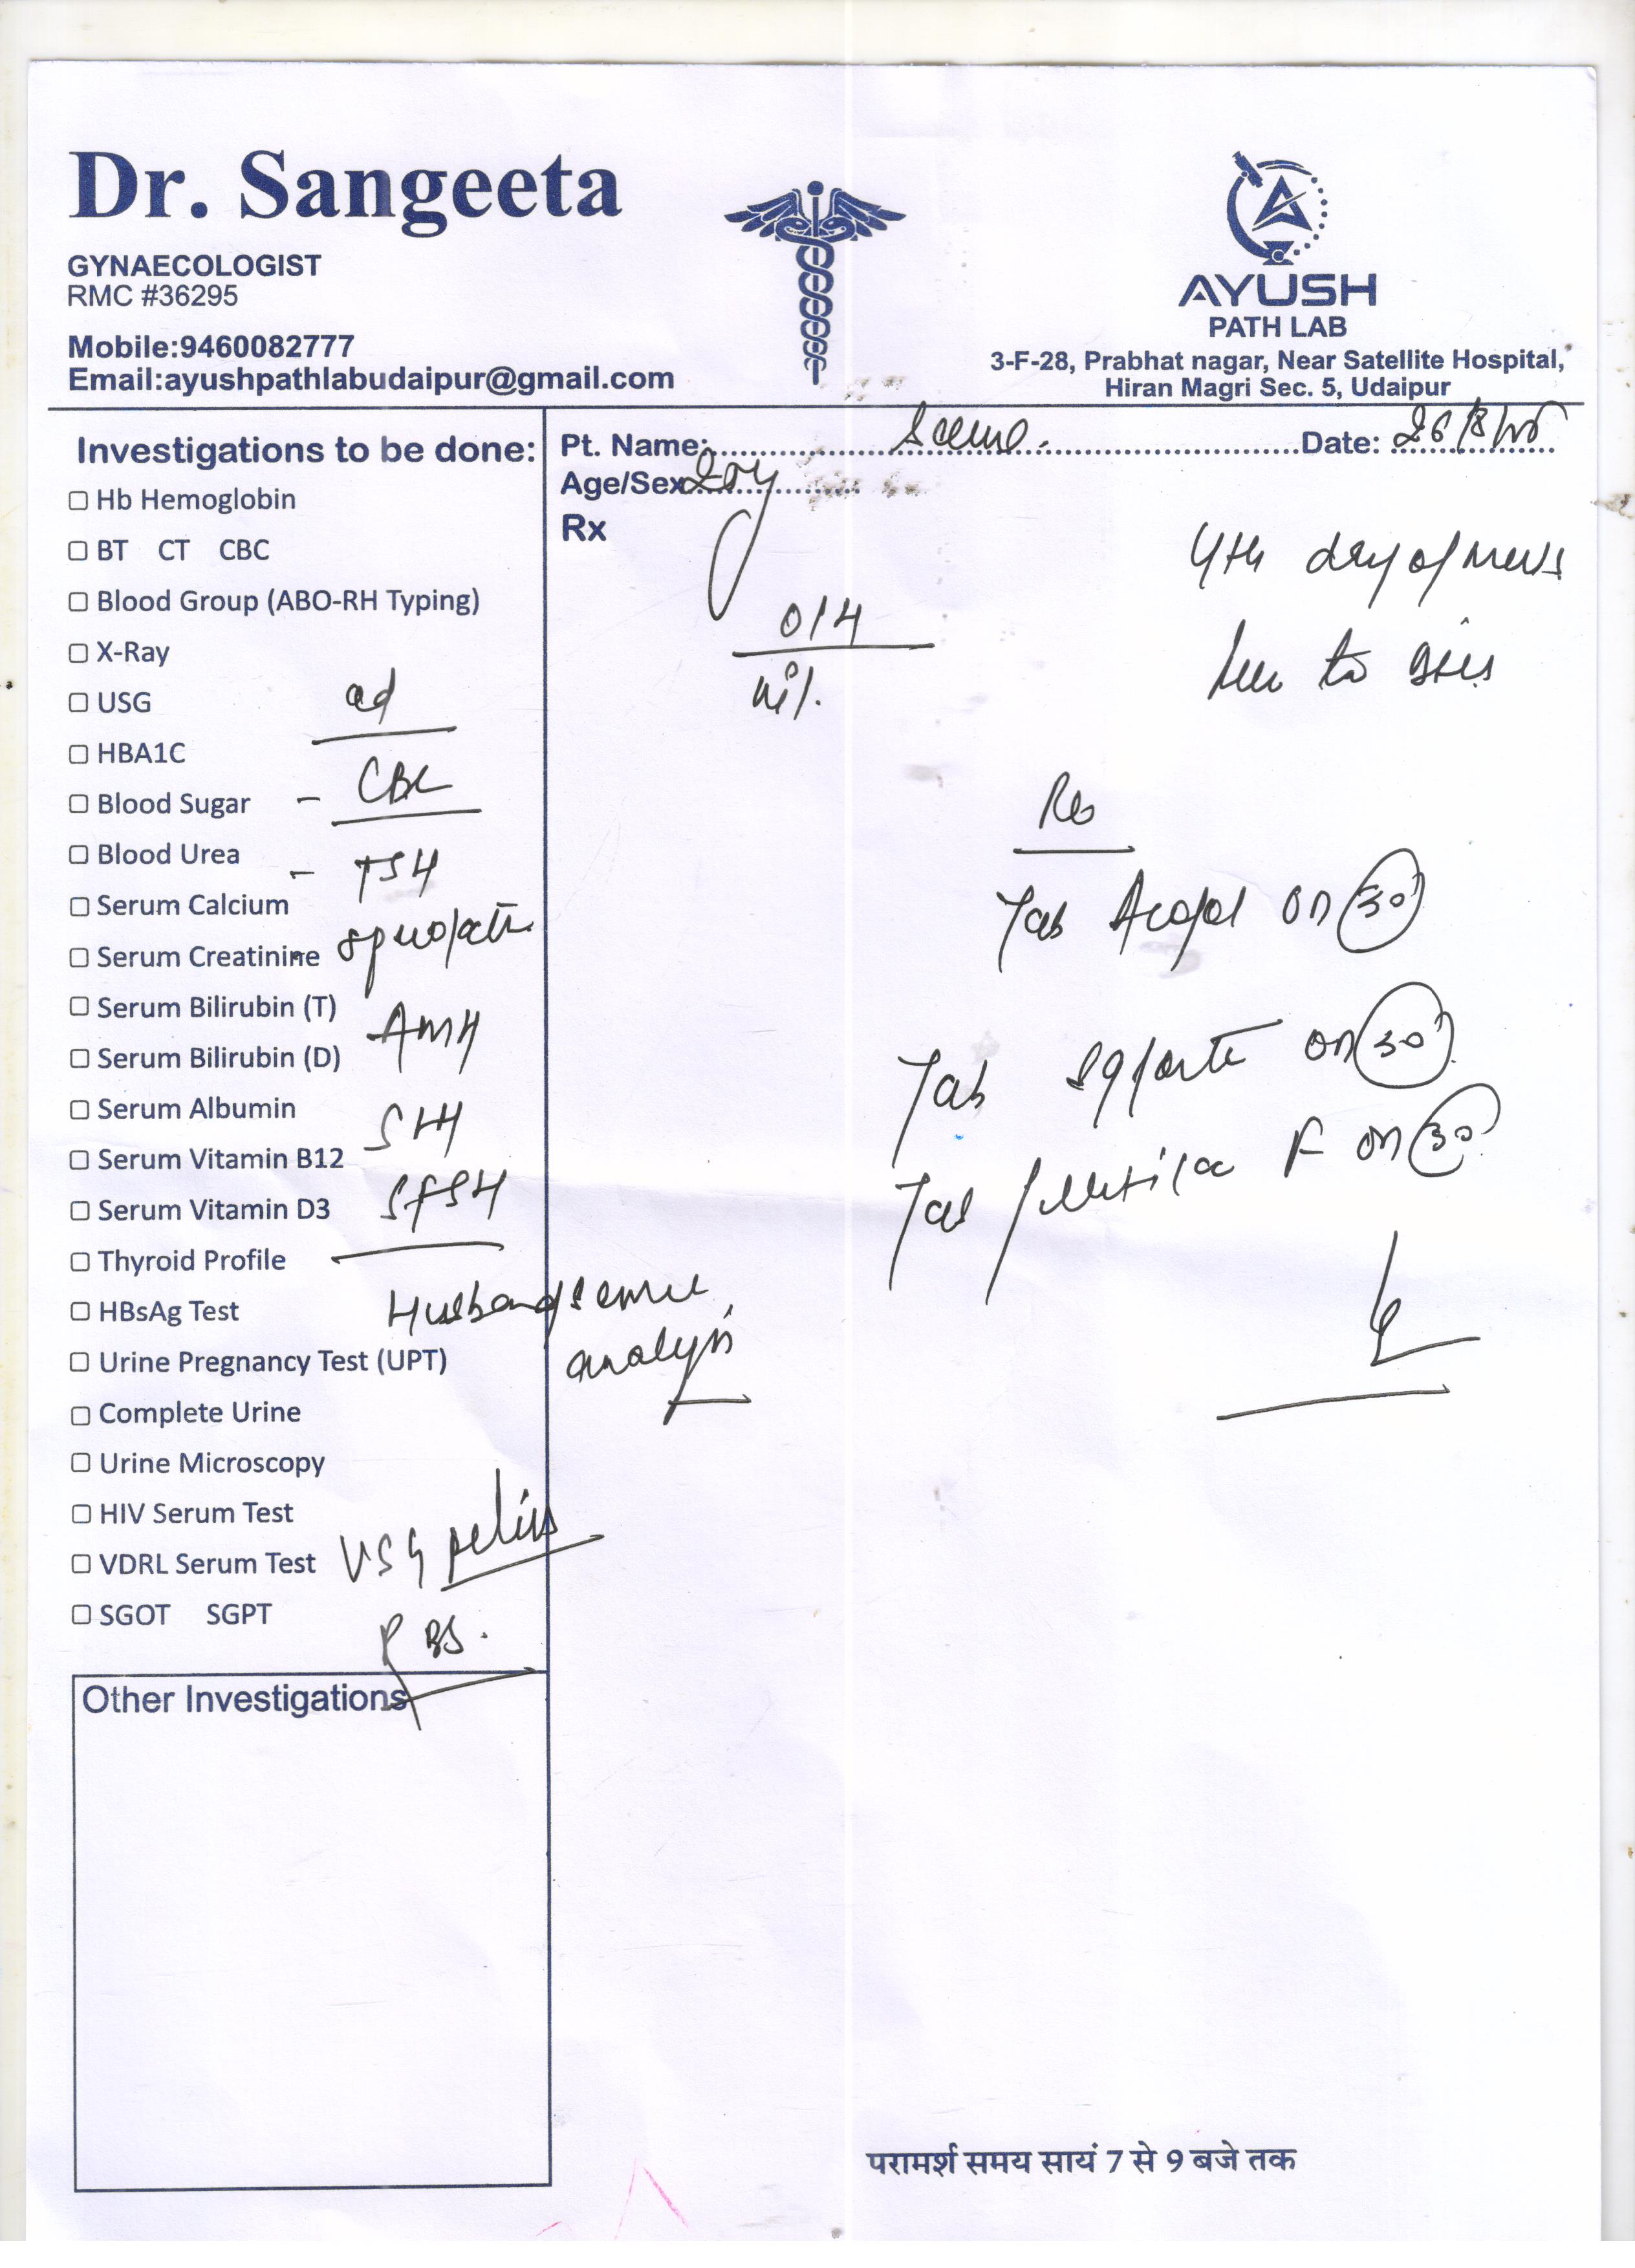 Dr. Sangeeta
GYNAECOLOGIST
RMC #36295
Mobile:9460082777
Email:ayushpathlabudaipur@gmail.com
AYUSH
PATH LAB
3-F-28, Prabhat nagar, Near Satellite Hospital,
Hiran Magri Sec. 5, Udaipur
Pt. Name: Date:
Age/Sex
Rx
4th day of
to
O/H
Nil.
Tab on 30
Tab on 30
Tab F on 30
Investigations to be done:
Hb Hemoglobin
BT CT CBC
Blood Group (ABO-RH Typing)
X-Ray
USG
ad
HBA1C
Blood Sugar - CBC
Blood Urea - TSH
Serum Calcium
Serum Creatinine
Serum Bilirubin (T)
AMH
Serum Bilirubin (D)
Serum Albumin
Serum Vitamin B12
Serum Vitamin D3 SFSH
Thyroid Profile
HBsAg Test Husband
analysis
Urine Pregnancy Test (UPT)
Complete Urine
Urine Microscopy
HIV Serum Test
VDRL Serum Test USG pelvis
SGOT SGPT
RBS.
Other Investigations
परामर्श समय सायं 7 से 9 बजे तक